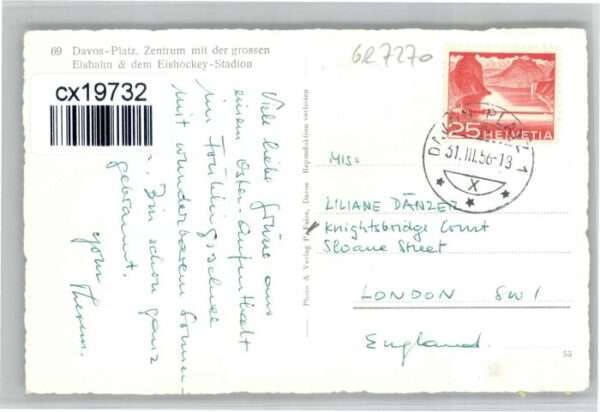 69 Davos-Platz. Zentrum mit der grossen
Eisbahn & dem Eishockey-Stadion
cx19732
Viele liebe Grüsse aus
einem Oster-Aufenthalt
im Frühlingsschnee
mit wunderbarem Sonnen-
Bin schon ganz
gebrannt.
your
Photo & Verlag
Davos Reproduktion verboten
6R7270
25 HELVETIA
DAVOS PLATZ 1
31.III.56-19
X
MISS
LILIANE DÄNZER
Knightsbridge Court
Sloane Street
LONDON SW1
England
55